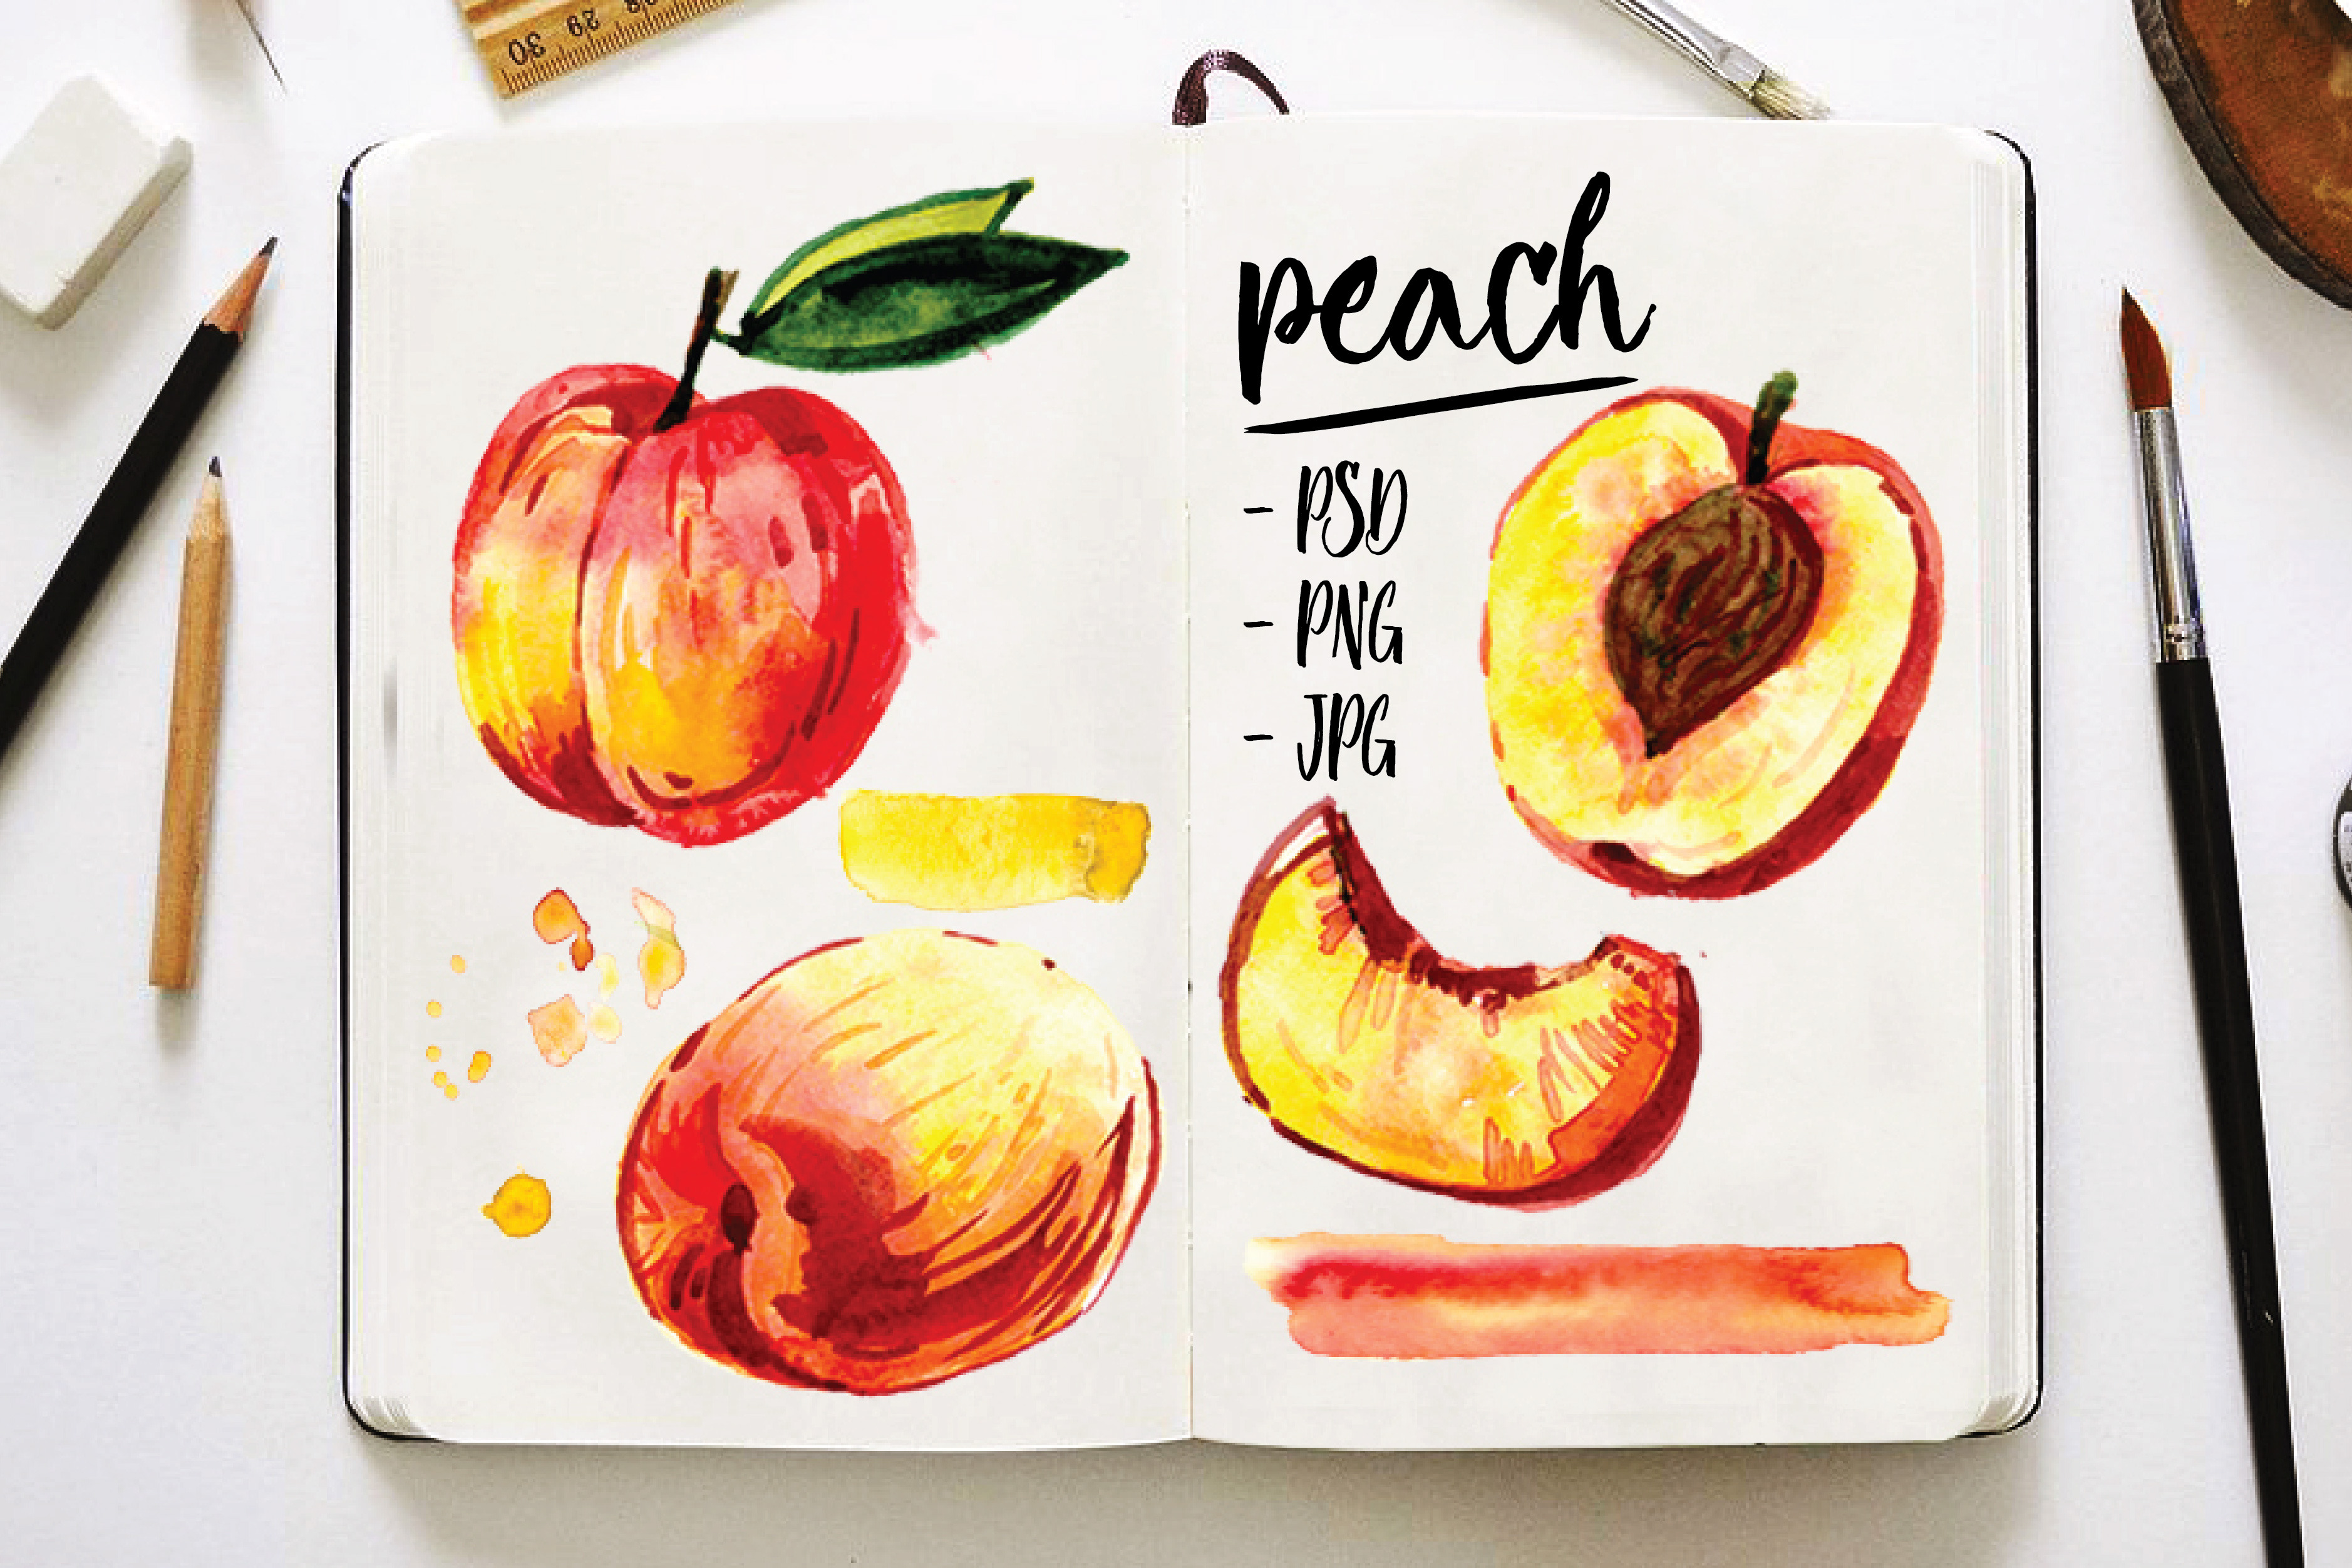 30 29 28
peach
- PSD
- PNG
- JPG